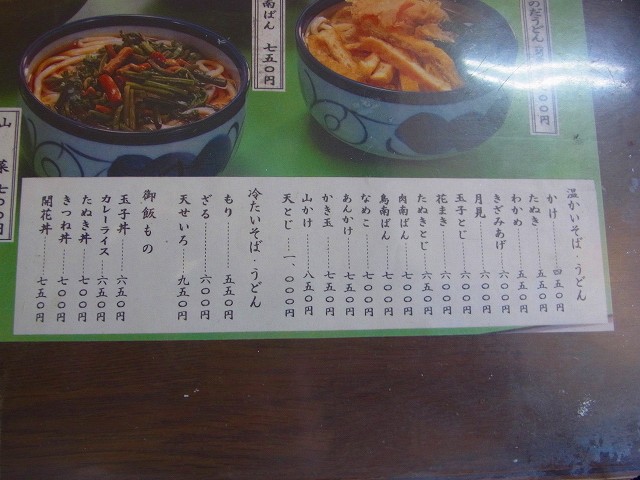 南ばん 七五〇円
のだうどん
〇〇円
山菜 七〇〇円
温かいそば・うどん
かけ 四五〇円
たぬき 五五〇円
わかめ 五五〇円
きざみあげ 六〇〇円
月見 六〇〇円
玉子とじ 六〇〇円
花まき 六〇〇円
たぬきとじ 六五〇円
肉南ばん 七〇〇円
鳥南ばん 七〇〇円
なめこ 七〇〇円
あんかけ 七五〇円
かき玉 七五〇円
山かけ 八五〇円
天とじ 一、〇〇〇円
冷たいそば・うどん
もり 五五〇円
ざる 六〇〇円
天せいろ 九五〇円
御飯もの
玉子丼 六五〇円
カレーライス 六五〇円
たぬき丼 七〇〇円
きつね丼 七〇〇円
開花丼 七五〇円